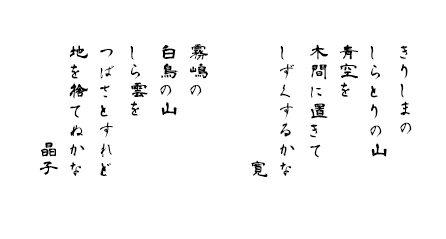 きりしまの
しらとりの山
青空を
木間に置きて
しずくするかな
寛
霧嶋の
白鳥の山
しら雲を
つばさとすれど
地を捨てぬかな
晶子